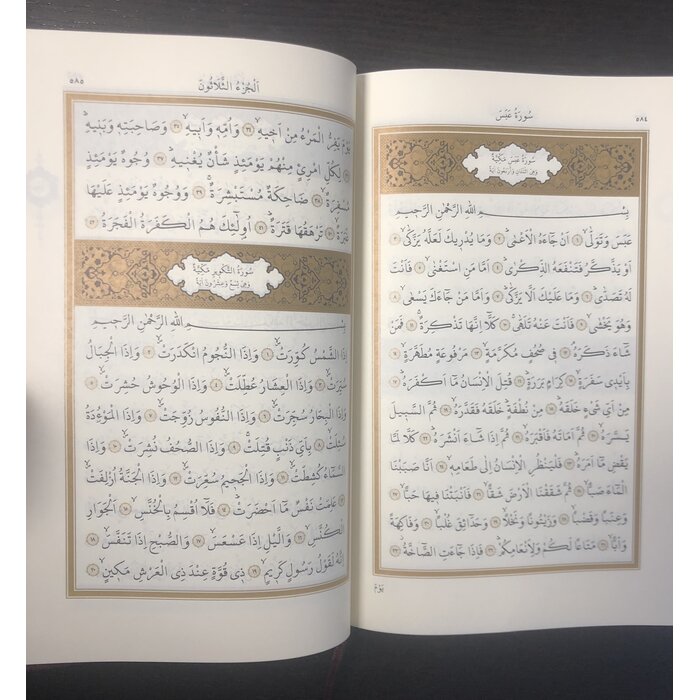 سُورَةُ عَبَسَ
٥٨٤
سُورَةُ عَبَسَ مَكِّيَّةٌ
وَهِيَ اثْنَتَانِ وَاَرْبَعُونَ اٰيَةً
بِسْمِ اللّٰهِ الرَّحْمٰنِ الرَّحِيمِ
عَبَسَ وَتَوَلّٰىۙ ١ اَنْ جَٓاءَهُ الْاَعْمٰىۜ ٢ وَمَا يُدْرِيكَ لَعَلَّهُ يَزَّكّٰىۙ ٣
اَوْ يَذَّكَّرُ فَتَنْفَعَهُ الذِّكْرٰىۜ ٤ اَمَّا مَنِ اسْتَغْنٰىۙ ٥ فَاَنْتَ
لَهُ تَصَدّٰىۜ ٦ وَمَا عَلَيْكَ اَلَّا يَزَّكّٰىۜ ٧ وَاَمَّا مَنْ جَٓاءَكَ يَسْعٰىۙ ٨
وَهُوَ يَخْشٰىۙ ٩ فَاَنْتَ عَنْهُ تَلَهّٰىۚ ١٠ كَلَّٓا اِنَّهَا تَذْكِرَةٌۚ ١١ فَمَنْ
شَٓاءَ ذَكَرَهُۢ ١٢ فِي صُحُفٍ مُكَرَّمَةٍۙ ١٣ مَرْفُوعَةٍ مُطَهَّرَةٍۙ ١٤
بِاَيْدِي سَفَرَةٍۙ ١٥ كِرَامٍ بَرَرَةٍۜ ١٦ قُتِلَ الْاِنْسَانُ مَٓا اَكْفَرَهُۜ ١٧
مِنْ اَيِّ شَيْءٍ خَلَقَهُۜ ١٨ مِنْ نُطْفَةٍۜ خَلَقَهُ فَقَدَّرَهُۙ ١٩ ثُمَّ السَّبِيلَ
يَسَّرَهُۙ ٢٠ ثُمَّ اَمَاتَهُ فَاَقْبَرَهُۙ ٢١ ثُمَّ اِذَا شَٓاءَ اَنْشَرَهُۜ ٢٢ كَلَّا لَمَّا
يَقْضِ مَٓا اَمَرَهُۜ ٢٣ فَلْيَنْظُرِ الْاِنْسَانُ اِلٰى طَعَامِهِۙ ٢٤ اَنَّا صَبَبْنَا
الْمَٓاءَ صَبًّاۙ ٢٥ ثُمَّ شَقَقْنَا الْاَرْضَ شَقًّاۙ ٢٦ فَاَنْبَتْنَا فِيهَا حَبًّاۙ ٢٧
وَعِنَبًا وَقَضْبًاۙ ٢٨ وَزَيْتُونًا وَنَخْلًاۙ ٢٩ وَحَدَٓائِقَ غُلْبًاۙ ٣٠ وَفَاكِهَةً
وَاَبًّاۙ ٣١ مَتَاعًا لَكُمْ وَلِاَنْعَامِكُمْۜ ٣٢ فَاِذَا جَٓاءَتِ الصَّٓاخَّةُۘ ٣٣
يَوْمَ
اَلْجُزْءُ الثَّلَاثُونَ
٥٨٥
يَوْمَ يَفِرُّ الْمَرْءُ مِنْ اَخِيهِۙ ٣٤ وَاُمِّهِ وَاَبِيهِۙ ٣٥ وَصَاحِبَتِهِ وَبَنِيهِۜ ٣٦
لِكُلِّ امْرِئٍ مِنْهُمْ يَوْمَئِذٍ شَأْنٌ يُغْنِيهِۜ ٣٧ وُجُوهٌ يَوْمَئِذٍ
مُسْفِرَةٌۙ ٣٨ ضَاحِكَةٌ مُسْتَبْشِرَةٌۚ ٣٩ وَوُجُوهٌ يَوْمَئِذٍ عَلَيْهَا
غَبَرَةٌۙ ٤٠ تَرْهَقُهَا قَتَرَةٌۜ ٤١ اُو۬لٰٓئِكَ هُمُ الْكَفَرَةُ الْفَجَرَةُ ٤٢
سُورَةُ التَّكْوِيرِ مَكِّيَّةٌ
وَهِيَ تِسْعٌ وَعِشْرُونَ اٰيَةً
بِسْمِ اللّٰهِ الرَّحْمٰنِ الرَّحِيمِ
اِذَا الشَّمْسُ كُوِّرَتْۙ ١ وَاِذَا النُّجُومُ انْكَدَرَتْۙ ٢ وَاِذَا الْجِبَالُ
سُيِّرَتْۙ ٣ وَاِذَا الْعِشَارُ عُطِّلَتْۙ ٤ وَاِذَا الْوُحُوشُ حُشِرَتْۙ ٥
وَاِذَا الْبِحَارُ سُجِّرَتْۙ ٦ وَاِذَا النُّفُوسُ زُوِّجَتْۙ ٧ وَاِذَا الْمَوْءُ۫دَةُ
سُئِلَتْۙ ٨ بِاَيِّ ذَنْبٍ قُتِلَتْۚ ٩ وَاِذَا الصُّحُفُ نُشِرَتْۙ ١٠ وَاِذَا
السَّمَٓاءُ كُشِطَتْۙ ١١ وَاِذَا الْجَحِيمُ سُعِّرَتْۙ ١٢ وَاِذَا الْجَنَّةُ اُزْلِفَتْۙ ١٣
عَلِمَتْ نَفْسٌ مَٓا اَحْضَرَتْۜ ١٤ فَلَٓا اُقْسِمُ بِالْخُنَّسِۙ ١٥ اَلْجَوَارِ
الْكُنَّسِۙ ١٦ وَالَّيْلِ اِذَا عَسْعَسَۙ ١٧ وَالصُّبْحِ اِذَا تَنَفَّسَۙ ١٨
اِنَّهُ لَقَوْلُ رَسُولٍ كَرِيمٍۙ ١٩ ذِي قُوَّةٍ عِنْدَ ذِي الْعَرْشِ مَكِينٍۙ ٢٠